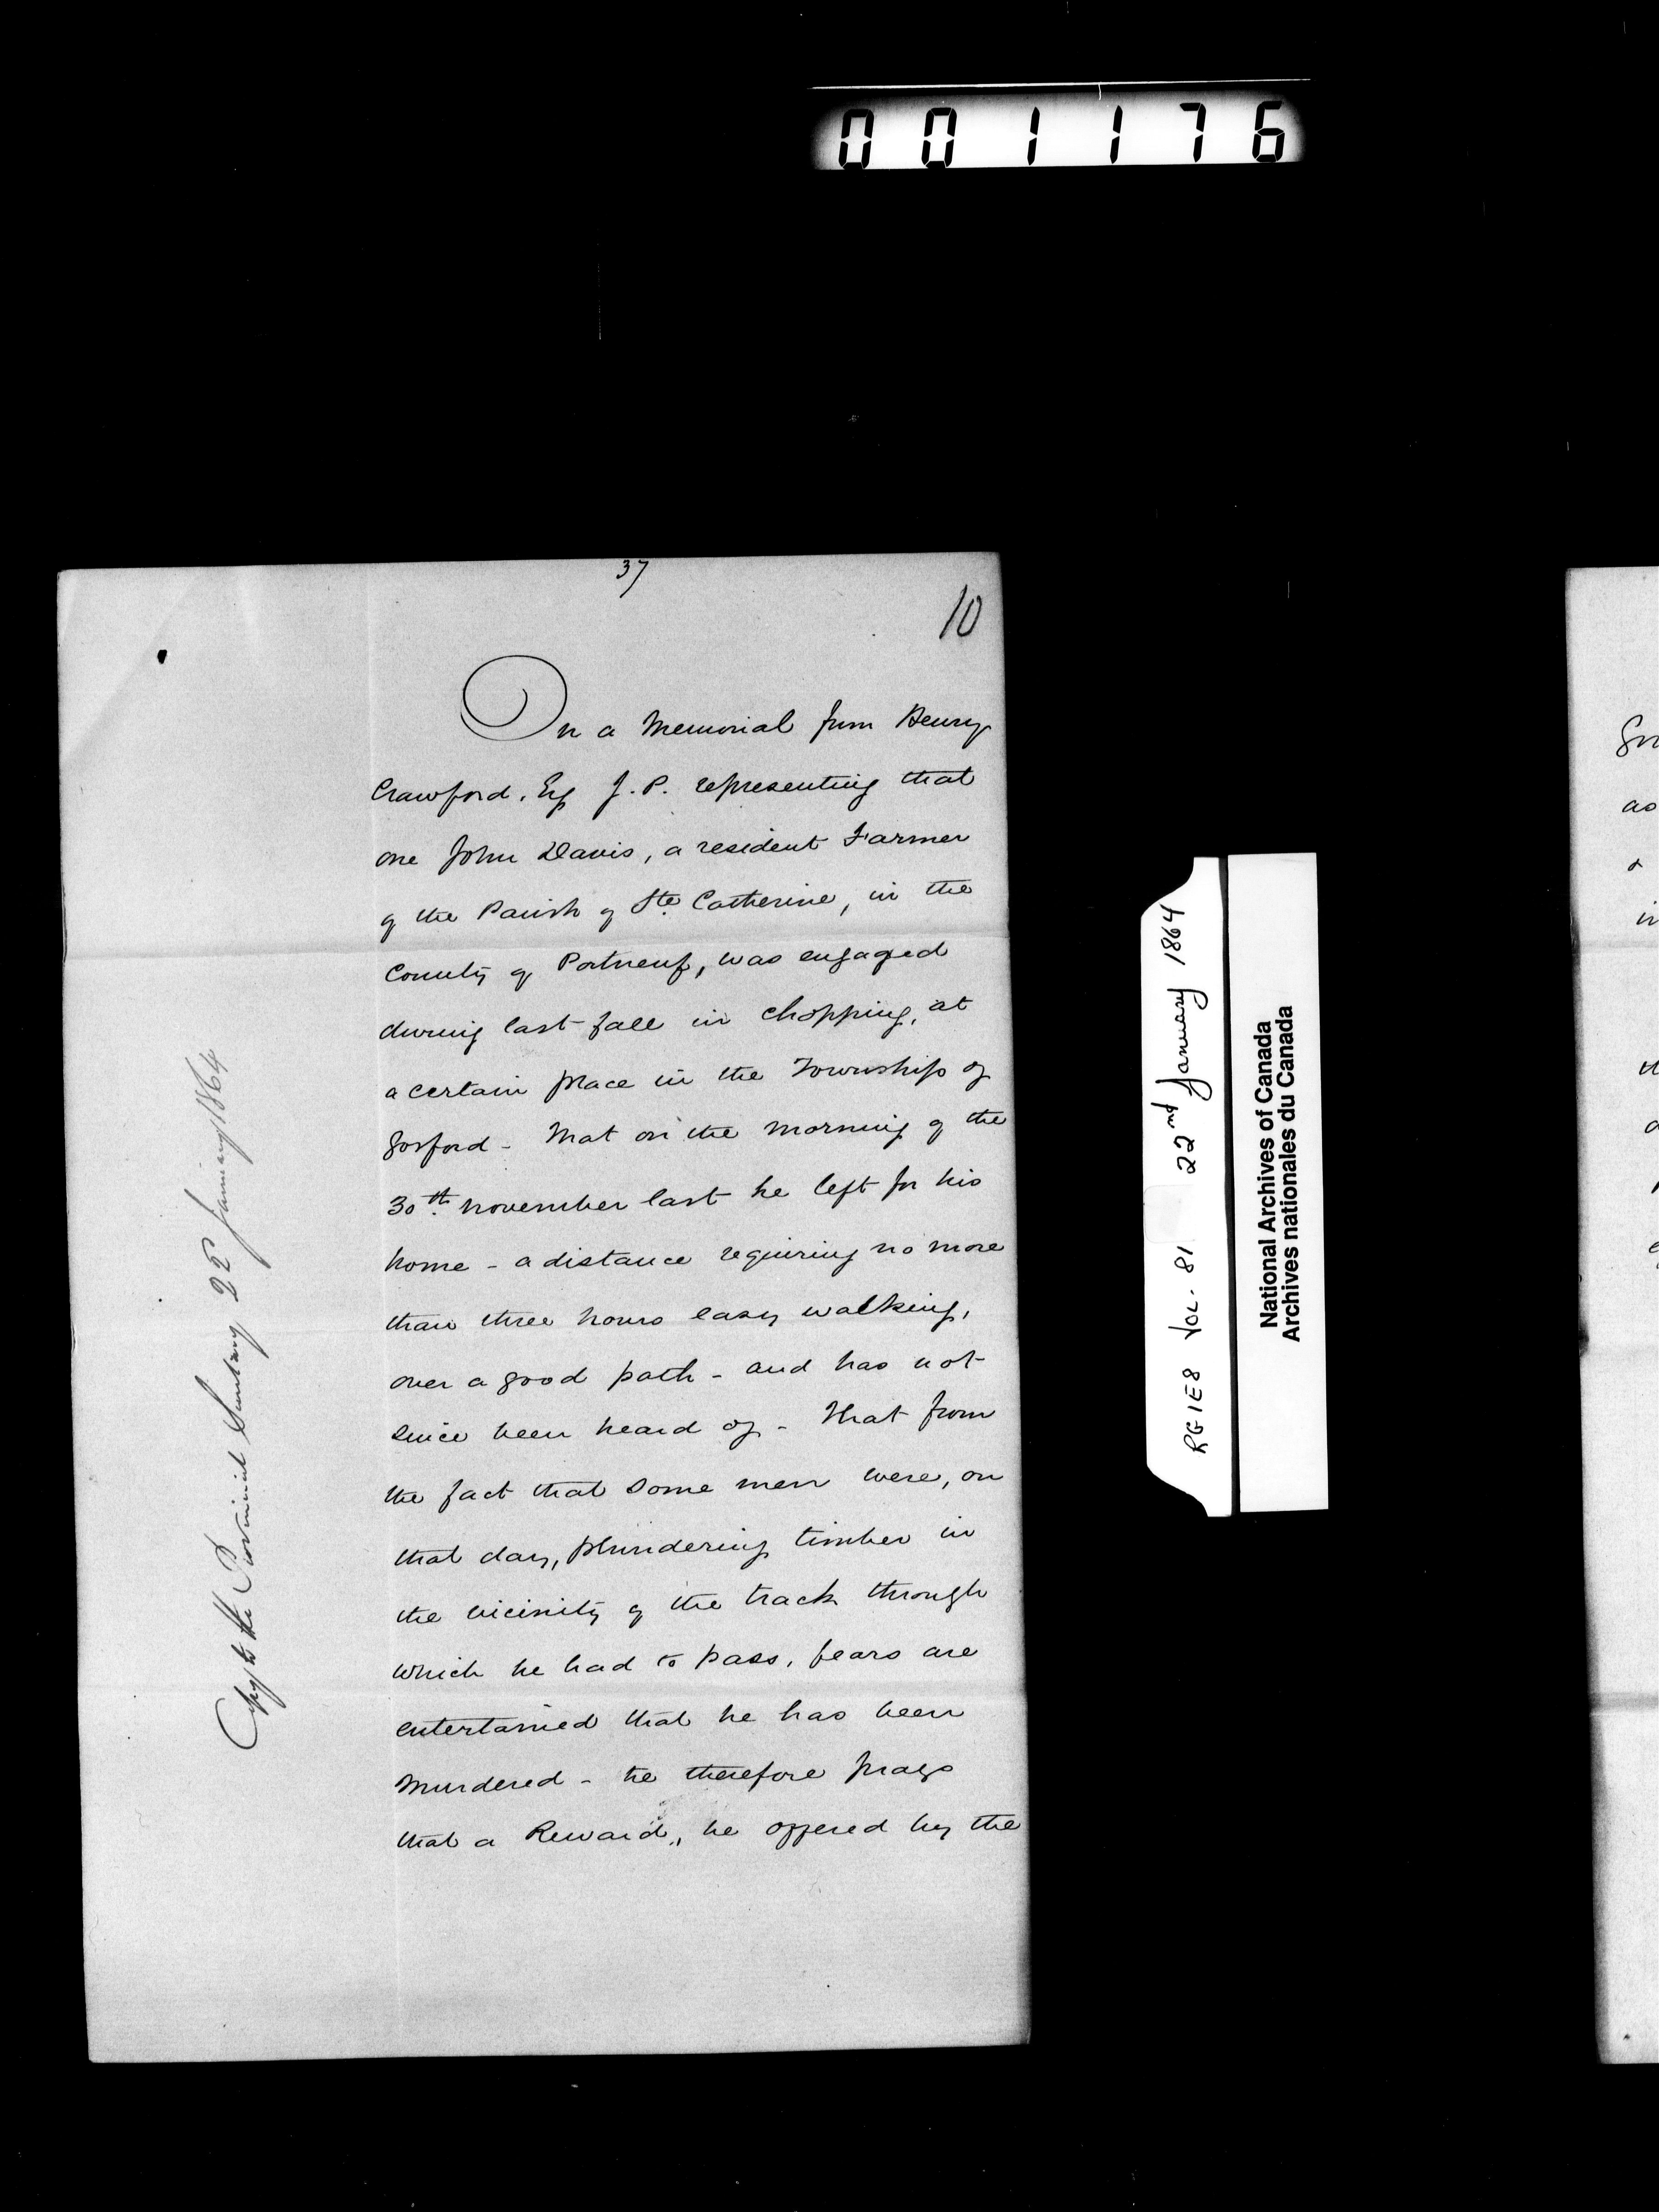 001176
37
10
On a Memorial from Henry
Crawford. Esq J. P. representing that
one John Davis, a resident Farmer
of the Parish of Ste Catherine, in the
County of Portneuf, was engaged
during last fall in chopping, at
a certain place in the Township of
Gosford - That on the morning of the
30th November last he left for his
home - a distance requiring no more
than three hours easy walking,
over a good path - and has not
since been heard of - That from
the fact that some men were, on
that day, plundering timber in
the vicinity of the track through
which he had to pass, fears are
entertained that he has been
murdered - he therefore prays
that a Reward, be offered by the
Copy to the Provincial Secretary 22d January 1864
RG1E8 Vol. 81 22nd January 1864
National Archives of Canada
Archives nationales du Canada
as
in